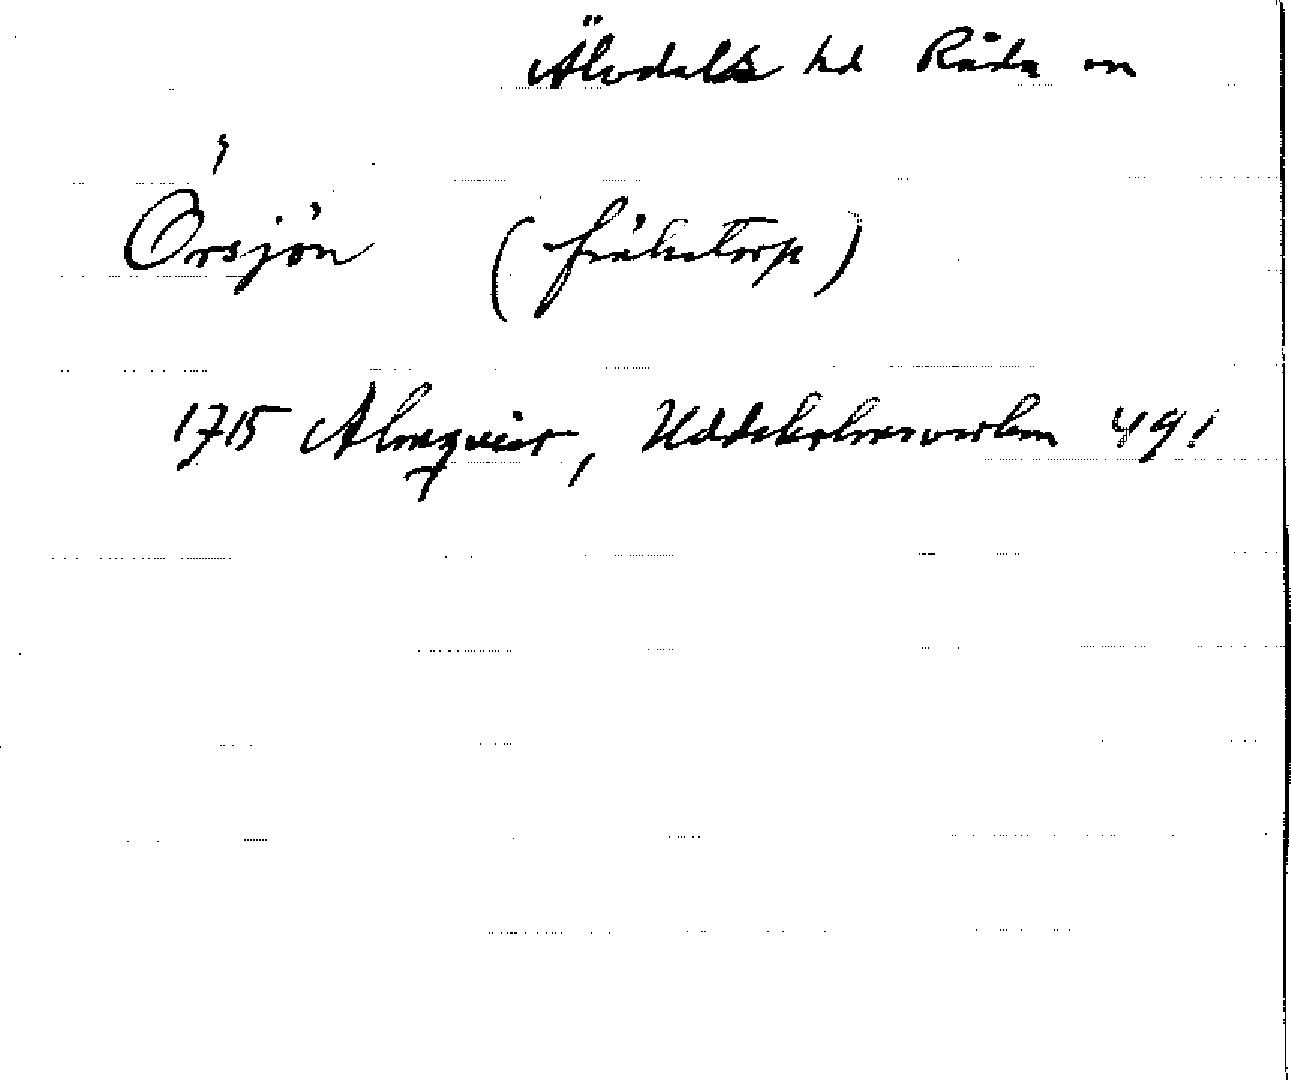 Älvdals hd Råda sn
Örsjön (frälsetorp)
1715 Almquist, Uddeholmsverken 491